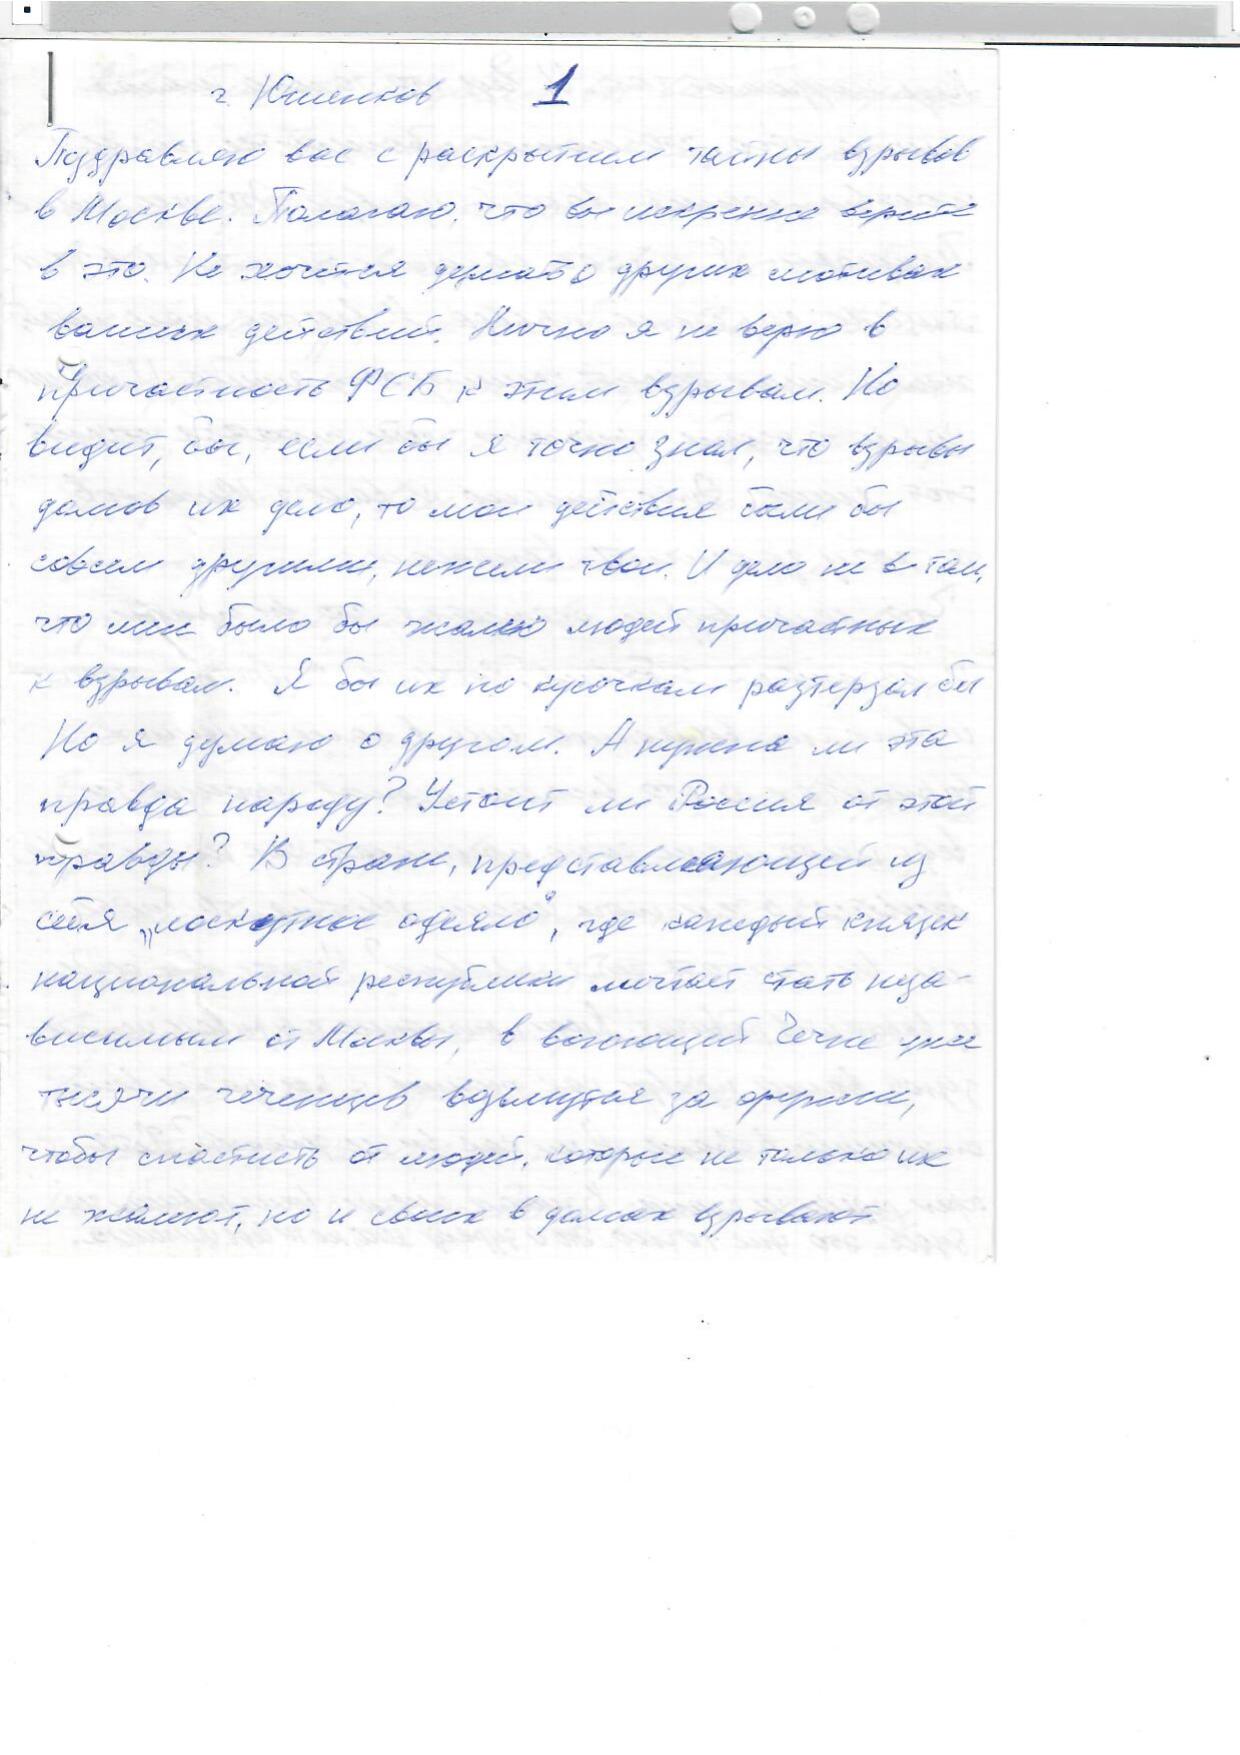 г. Юшенков 1
Поздравляю вас с раскрытием тайны взрывов
в Москве. Полагаю, что вы искренне верите
в это. Не хочется думать о других мотивах
ваших действий. Лично я не верю в
причастность ФСБ к этим взрывам. Но
видит, бы, если бы я точно знал, что взрывы
домов их дело, то мои действия были бы
совсем другими, нежели твои. И дело не в том,
что мне было бы жалко людей причастных
к взрывам. Я бы их по кусочкам разтерзал бы
Но я думаю о другом. А нужна ли эта
правда народу? Устоит ли Россия от этой
правды? В стране, представляющей из
себя "лоскутное одеяло", где каждый князек
национальной республики мечтает стать неза-
висимым от Москвы, в воюющей Чечне
тысячи чеченцев возьмутся за оружие,
чтобы спастись от людей, которые не только их
не жалеют, но и своих в домах взрывают